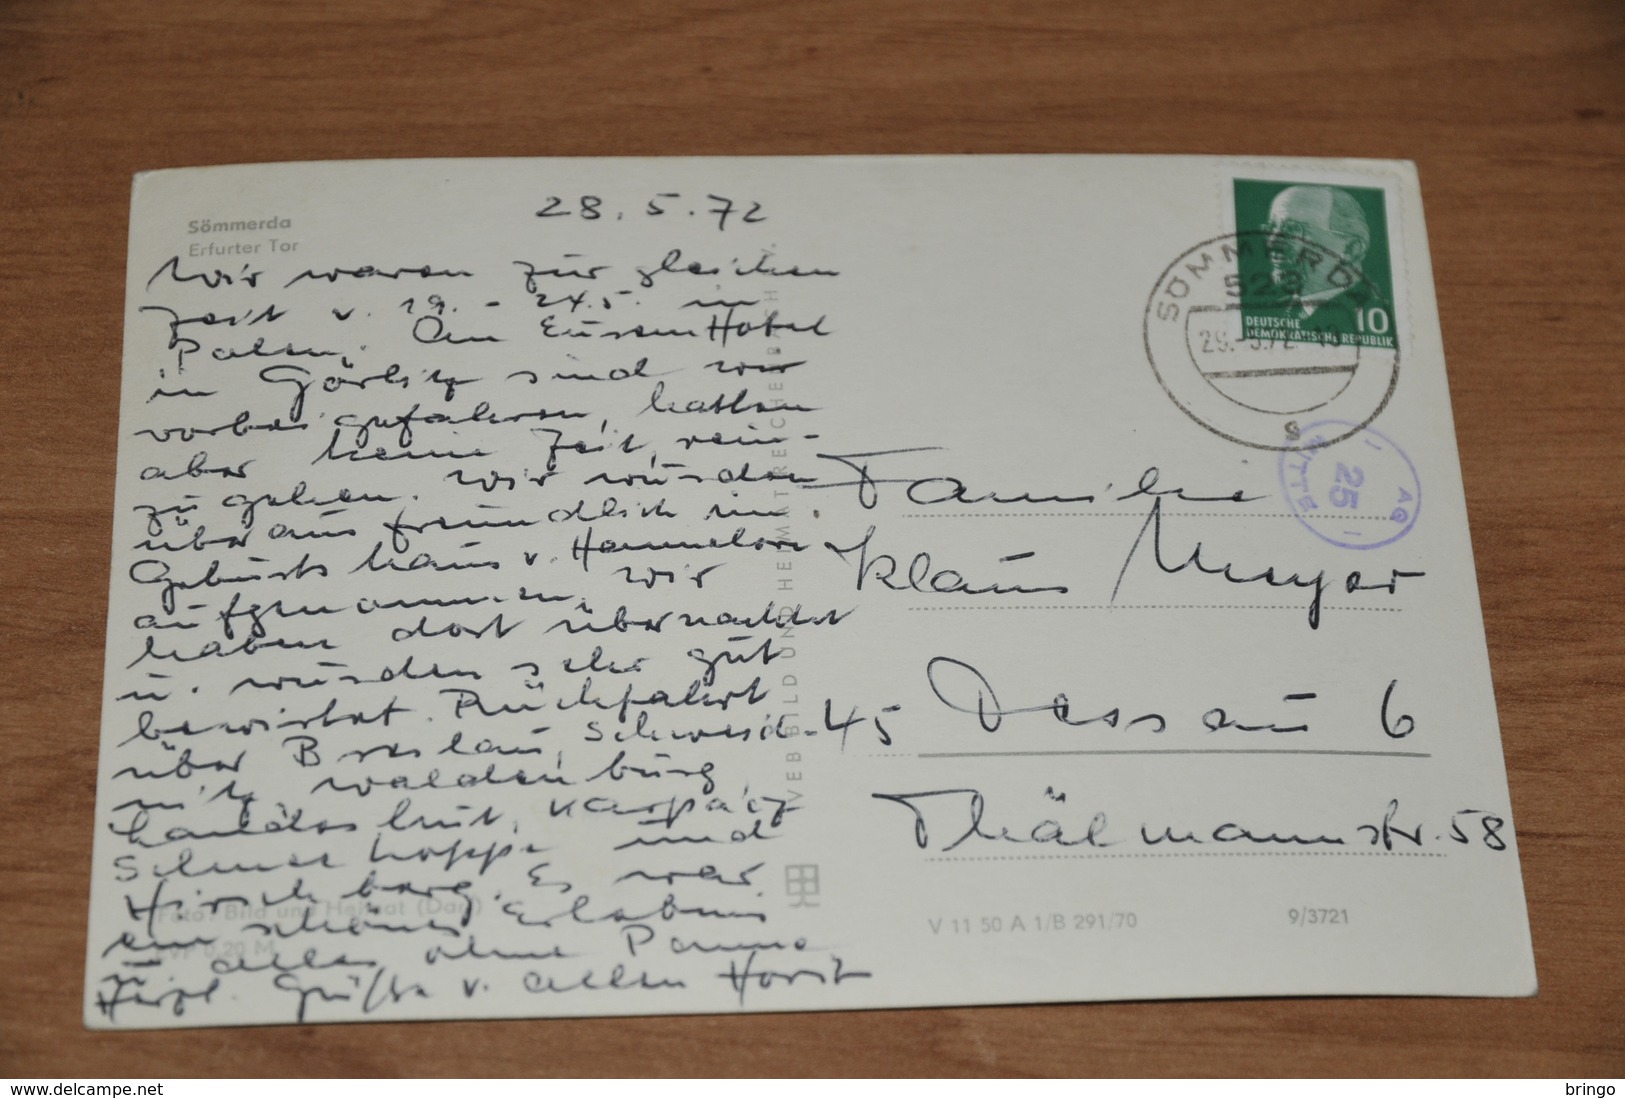 Sömmerda
Erfurter Tor
28.5.72
Wir waren zur gleichen
Zeit v. 19. - 24.5. in
Polen. Am Hotel
in Görlitz sind wir
vorbei gefahren, hatten
aber keine Zeit, rein-
zugehen. Wir wurden
überaus freundlich im
Geburtshaus v. Hannelore
aufgenommen, wir
haben dort übernachtet
u. wurden sehr gut
bewirtet. Rückfahrt
über Breslau, Schweid-
nitz, Waldenburg,
Landeshut, Karpacz
Schneekoppe und
Hirschberg. Es war
ein schönes Erlebnis
alles ohne Panne
Herzl. Grüße v. allen Horst
Foto: Bild und Heimat
EVP 0,20 M
VEB BILD UND HEIMAT REICHENBACH I. V.
DEUTSCHE
DEMOKRATISCHE REPUBLIK
10
SÖMMERDA
29.-5.72
s
AG
25
MITTE
Familie
Klaus Meyer
45 Dessau 6
Thälmannstr. 58
V 11 50 A 1/B 291/70
9/3721
www.delcampe.net
bringo